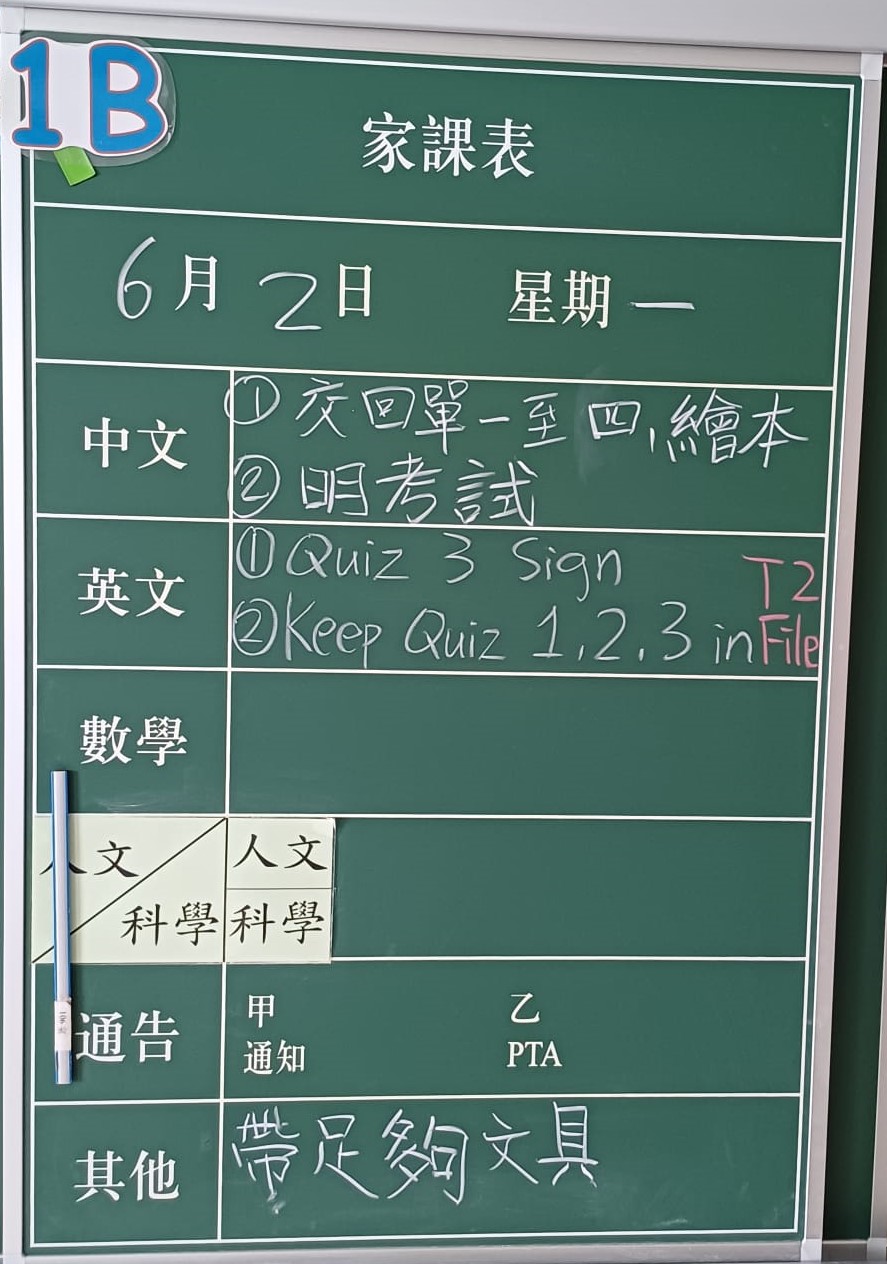 1B
家課表
6月2日 星期一
中文
① 交回單一至四,繪本
② 明考試
英文
① Quiz 3 Sign
② Keep Quiz 1,2,3 in T2 File
數學
人文/科學
人文
科學
通告
甲 乙
通知 PTA
其他
帶足夠文具